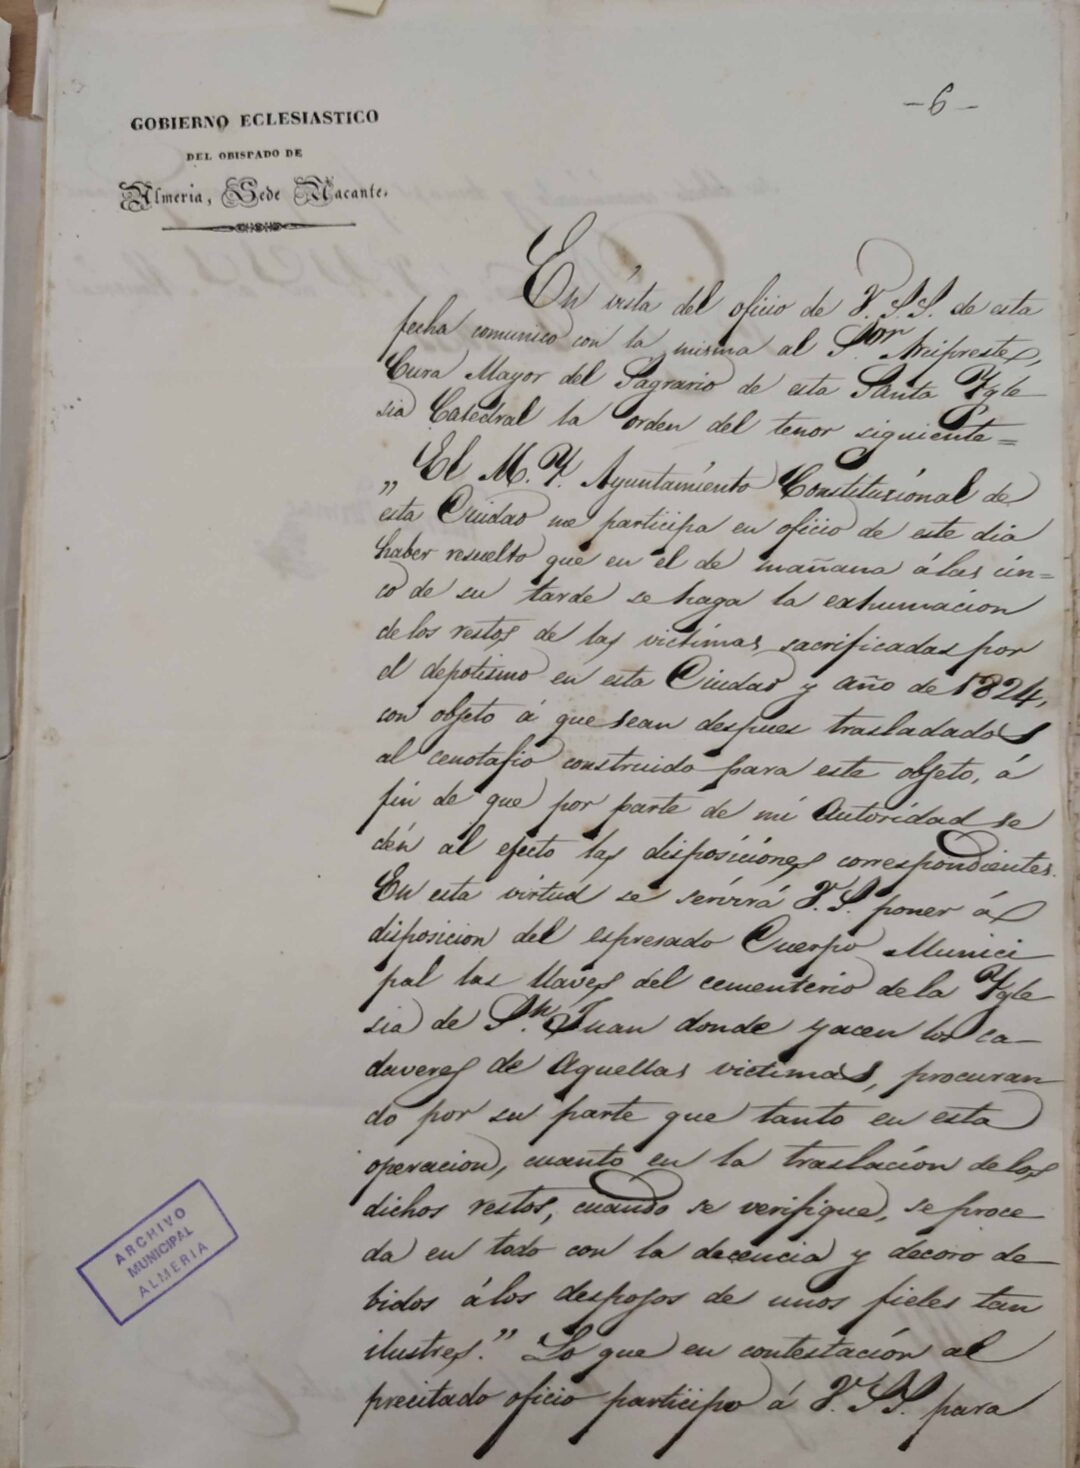 GOBIERNO ECLESIASTICO
DEL OBISPADO DE
Almeria, Sede Vacante.
- 6 -
En vista del oficio de V.S.S. de esta
fecha comunico con la misma al S.or Arcipreste,
Cura Mayor del Sagrario de esta Santa Ygle
sia Catedral la orden del tenor siguiente=
„El M. Y. Ayuntamiento Constitucional de
esta Ciudad me participa en oficio de este dia
haber resuelto que en el de mañana á las cin=
co de su tarde se haga la exhumacion
de los restos de las victimas sacrificadas por
el depotismo en esta Ciudad y año de 1824,
con objeto á que sean despues trasladados
al cenotafio construido para este objeto, á
fin de que por parte de mi Autoridad se
dén al efecto las disposiciones correspondientes.
En esta virtud se servirá V.S. poner á
disposicion del espresado Cuerpo Munici
pal las llaves del cementerio de la Ygle
sia de S.n Juan donde yacen los ca-
daveres de aquellas victimas, procuran
do por su parte que tanto en esta
operacion, cuanto en la traslacion de los
dichos restos, cuando se verifique, se proce
da en todo con la decencia y decoro de-
bidos á los despojos de unos fieles tan
ilustres.” Lo que en contestación al
precitado oficio participo á V.SS. para
ARCHIVO
MUNICIPAL
ALMERIA